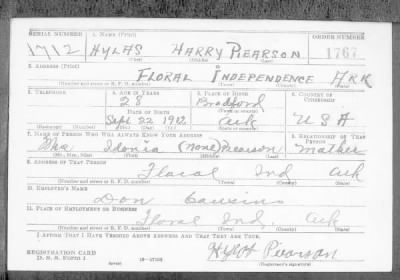 SERIAL NUMBER 1. NAME (Print) ORDER NUMBER
1712 HYLAS HARRY PIEARSON 1767
2. ADDRESS (Print)
FLORAL INDEPENDENCE ARK
(Number and street or R. F. D. number) (Town) (County) (State)
3. TELEPHONE 4. AGE IN YEARS 5. PLACE OF BIRTH 6. COUNTRY OF CITIZENSHIP
28 Bradford
DATE OF BIRTH
Sept 22 1912 Ark U S A
(Exchange) (Number) (Mo.) (Day) (Yr.) (State or country)
7. NAME OF PERSON WHO WILL ALWAYS KNOW YOUR ADDRESS 8. RELATIONSHIP OF THAT PERSON
Mrs Idonia (None) Piearson Mother
(Mr., Mrs., Miss) (First) (Middle) (Last)
9. ADDRESS OF THAT PERSON
Floral Ind Ark
(Number and street or R. F. D. number) (Town) (County) (State)
10. EMPLOYER'S NAME
Don
11. PLACE OF EMPLOYMENT OR BUSINESS
Floral Ind. Ark
(Number and street or R. F. D. number) (Town) (County) (State)
I AFFIRM THAT I HAVE VERIFIED ABOVE ANSWERS AND THAT THEY ARE TRUE.
REGISTRATION CARD
D. S. S. FORM 1 (over) 16—17105 (Registrant's signature)
Piearson